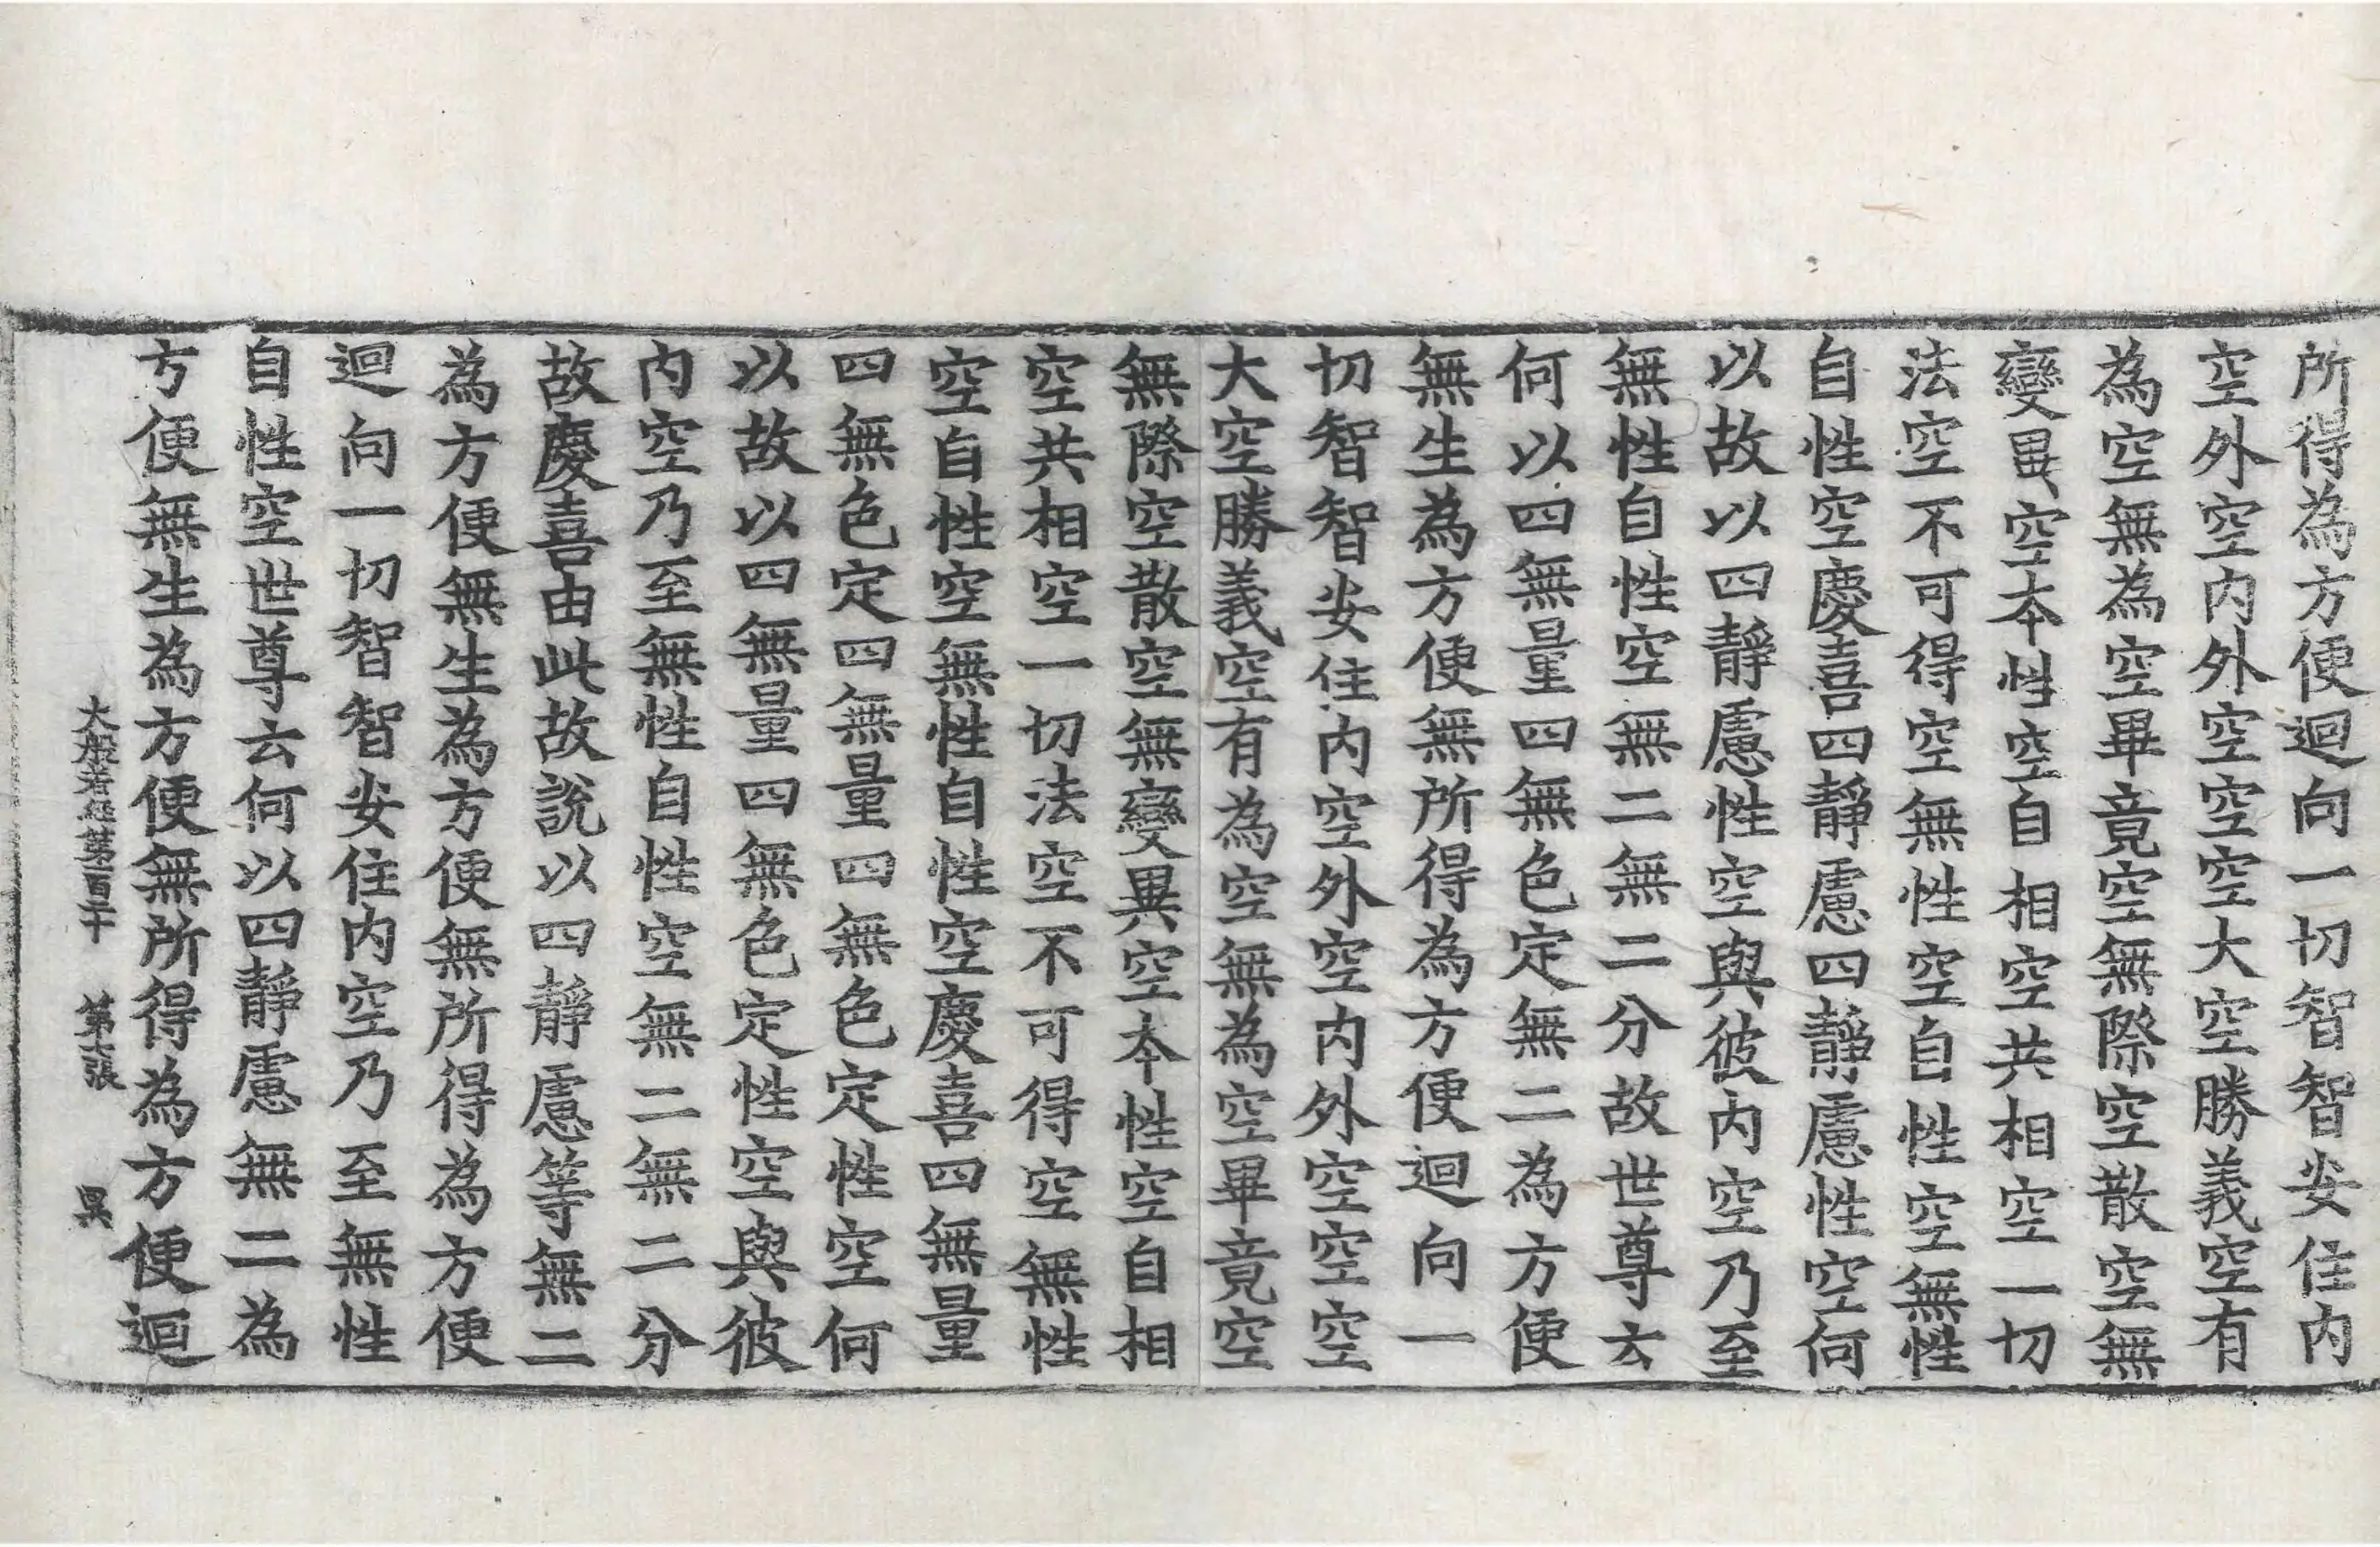 所得為方便迴向一切智智安住内
空外空内外空空空大空勝義空有
為空無為空畢竟空無際空散空無
變異空本性空自相空共相空一切
法空不可得空無性空自性空無性
自性空慶喜四靜慮四靜慮性空何
以故以四靜慮性空與彼内空乃至
無性自性空無二無二分故世尊云
何以四無量四無色定無二為方便
無生為方便無所得為方便迴向一
切智智安住内空外空内外空空空
大空勝義空有為空無為空畢竟空
無際空散空無變異空本性空自相
空共相空一切法空不可得空無性
空自性空無性自性空慶喜四無量
四無色定四無量四無色定性空何
以故以四無量四無色定性空與彼
内空乃至無性自性空無二無二分
故慶喜由此故說以四靜慮等無二
為方便無生為方便無所得為方便
迴向一切智智安住内空乃至無性
自性空世尊云何以四靜慮無二為
方便無生為方便無所得為方便迴
大般若經第百二十 第張 昃